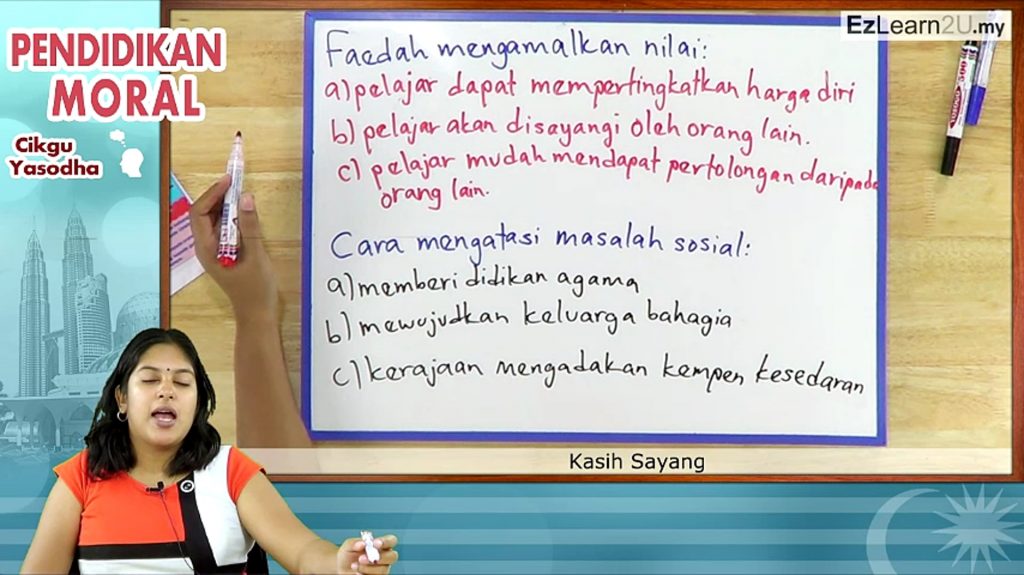 PENDIDIKAN
MORAL
Cikgu
Yasodha
EzLearn2U.my
Faedah mengamalkan nilai:
a) pelajar dapat mempertingkatkan harga diri
b) pelajar akan disayangi oleh orang lain.
c) pelajar mudah mendapat pertolongan daripada
orang lain.
Cara mengatasi masalah sosial:
a) memberi didikan agama
b) mewujudkan keluarga bahagia
c) kerajaan mengadakan kempen kesedaran
Kasih Sayang